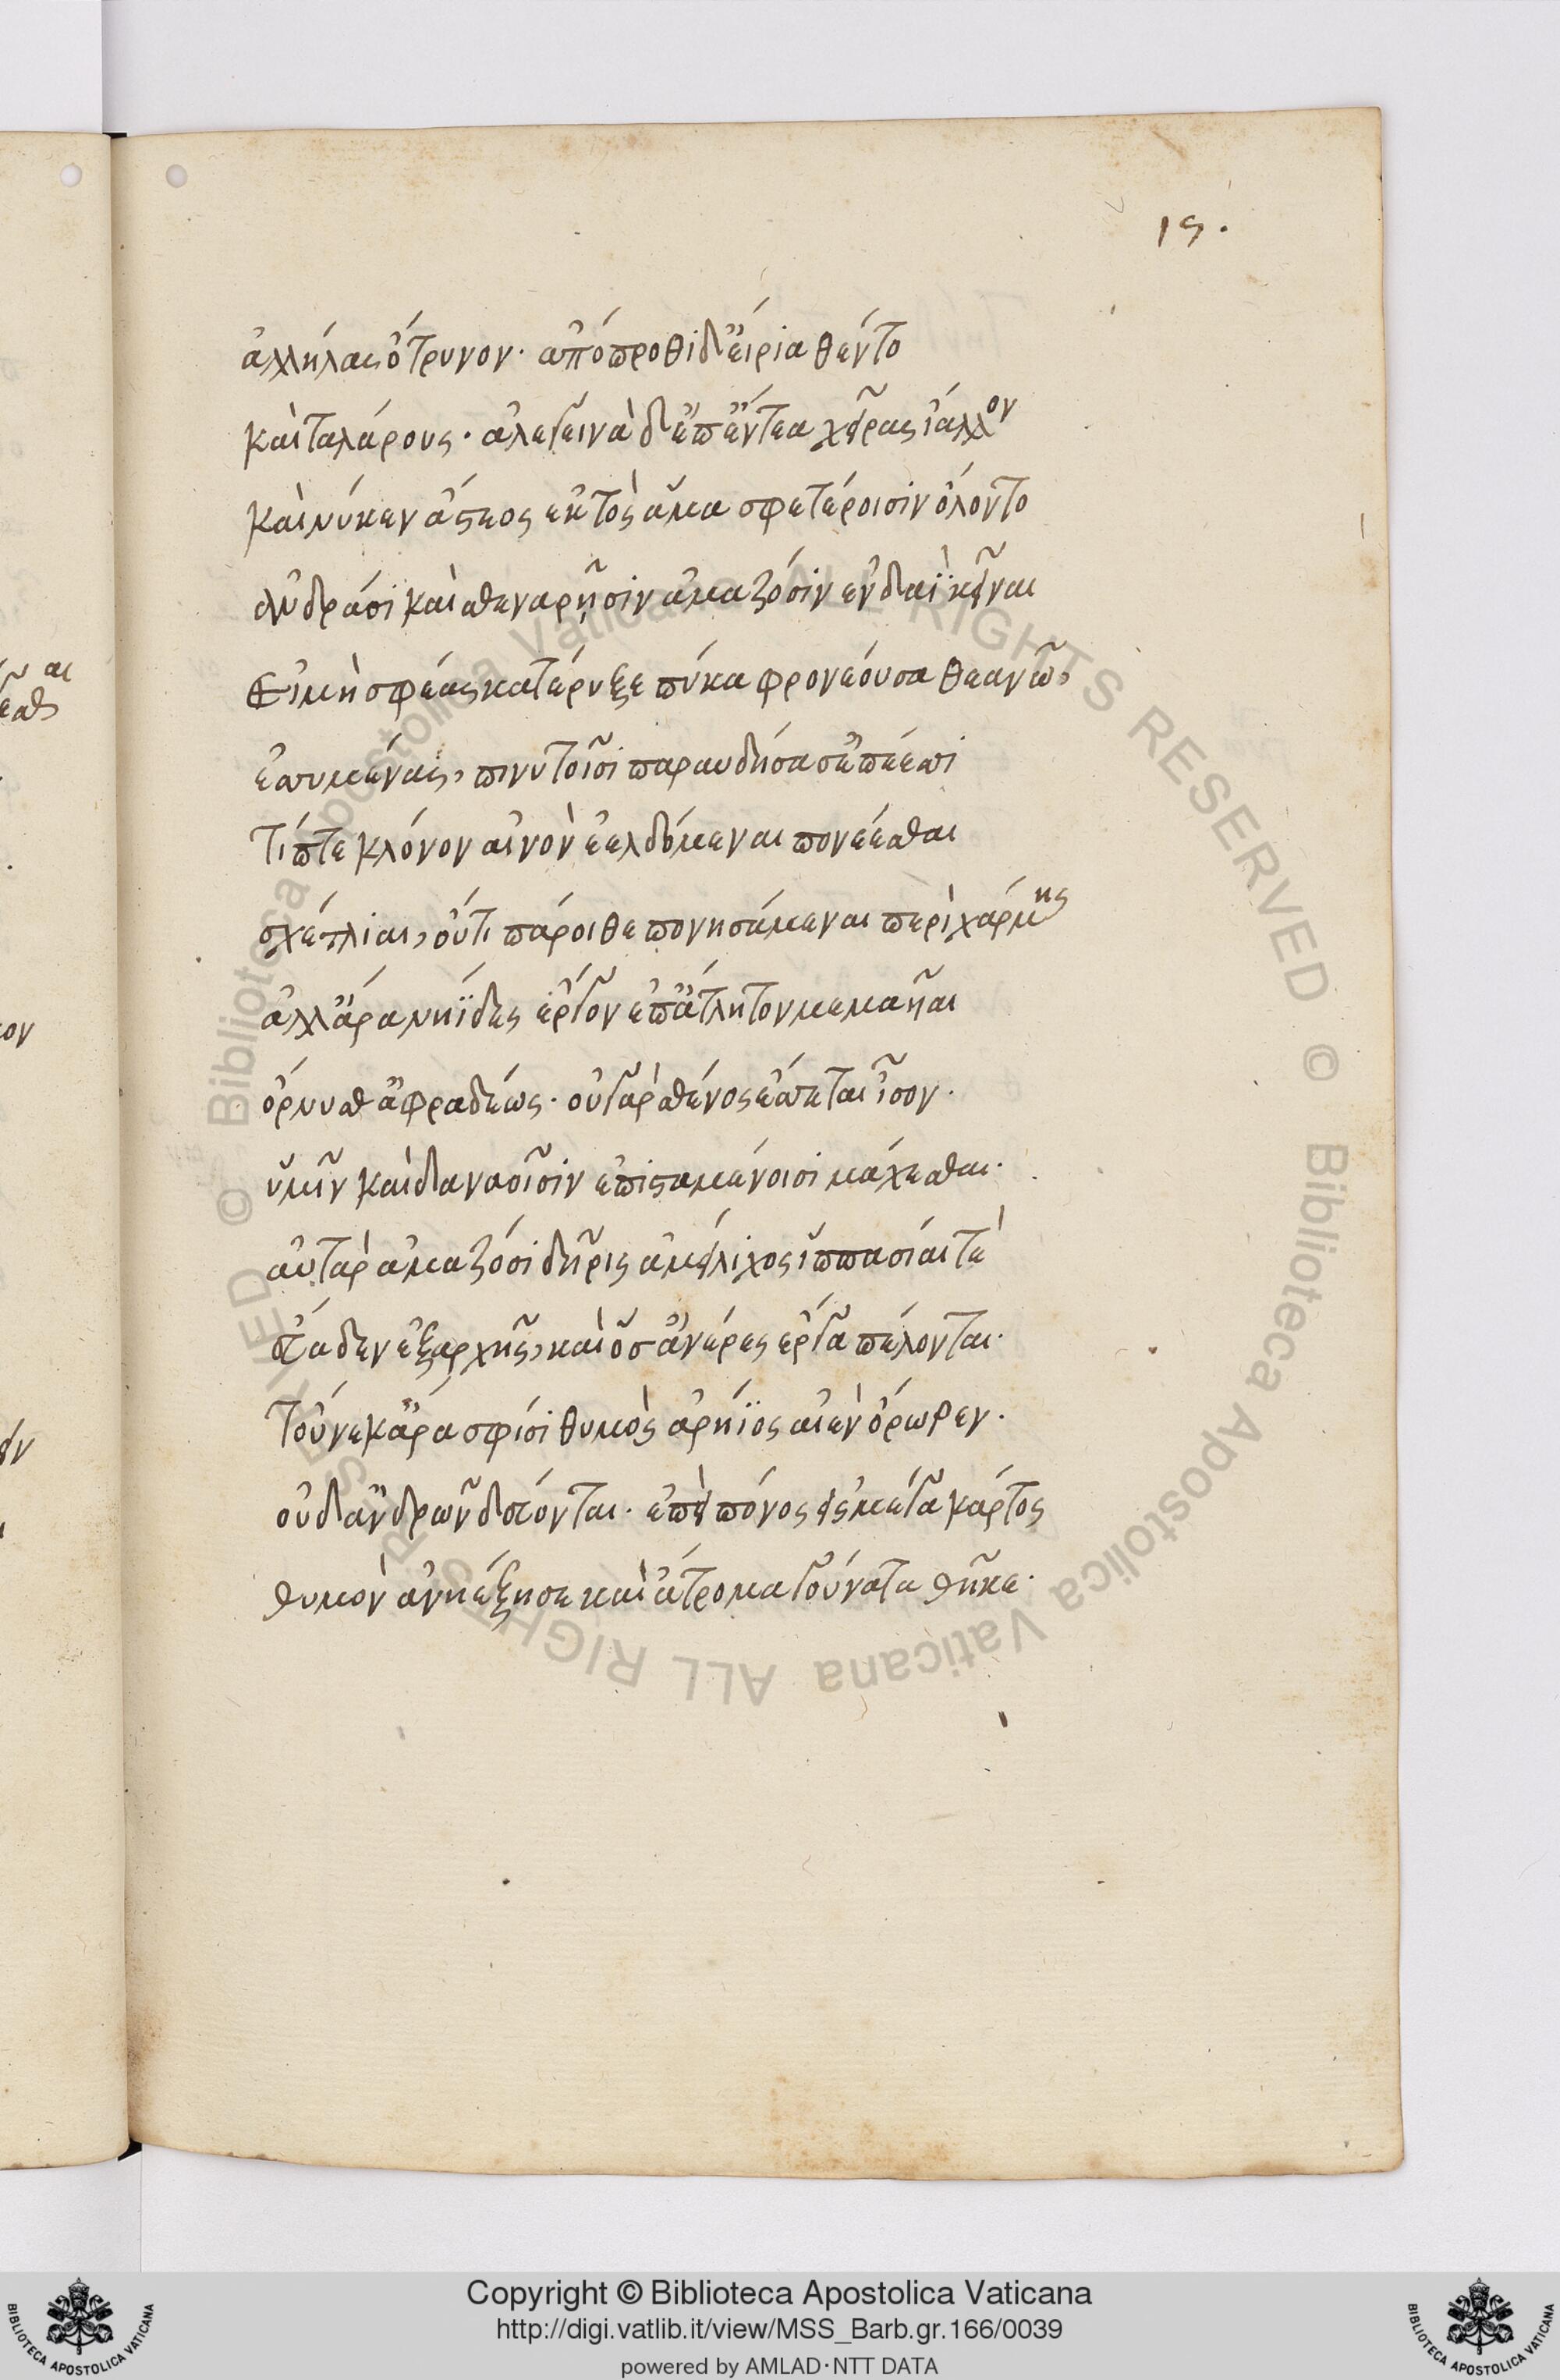 15.
ἀλλήλαις ὄτρυνον· ἀπόπροθι δ' εἴρια θέντο
καὶ ταλάρους· ἀλεγεινὰ δ' ἐπ' ἔντεα χεῖρας ἴαλλον
καὶ νύ κεν ἄστεος ἐκτὸς ἅμα σφετέροισιν ὄλοντο
ἀνδράσι καὶ σθεναρῇσιν ἀμαζόσιν ἐν δαῒ κεῖναι
Εἰ μή σφέας κατέρυξε πύκα φρονέουσα θεανῶ,
ἐσσυμένας, πινυτοῖσι παραυδήσασ' ἐπέεσσι
Τίπτε κλόνον αἰνὸν ἐελδόμεναι πονέεσθαι
σχέτλιαι, οὔτι πάροιθε πονησάμεναι περὶ χάρμης
ἀλλ' ἄρα νηΐδες ἔργον ἐπ' ἄτλητον μεμαῆαι
ὄρνυσθ' ἀφραδέως· οὐ γὰρ σθένος ἔσσεται ἶσον·
ὑμῖν καὶ δαναοῖσιν ἐπισταμένοισι μάχεσθαι·
αὐτὰρ ἀμαζόσι δῆρις ἀμείλιχος ἱππασίαι τὲ
εὔαδεν ἐξ ἀρχῆς, καὶ ὅσ' ἀνέρες ἔργα πέλονται·
Τοὔνεκ' ἄρα σφίσι θυμὸς ἀρήϊος αἰὲν ὄρωρεν·
οὐδ' ἀνδρῶν δεύονται· ἐπεὶ πόνος ἐς μέγα κάρτος
θυμὸν ἀνηέξησε καὶ ἄτρομα γούνατα θῆκε·
Copyright © Biblioteca Apostolica Vaticana
http://digi.vatlib.it/view/MSS_Barb.gr.166/0039
powered by AMLAD·NTT DATA